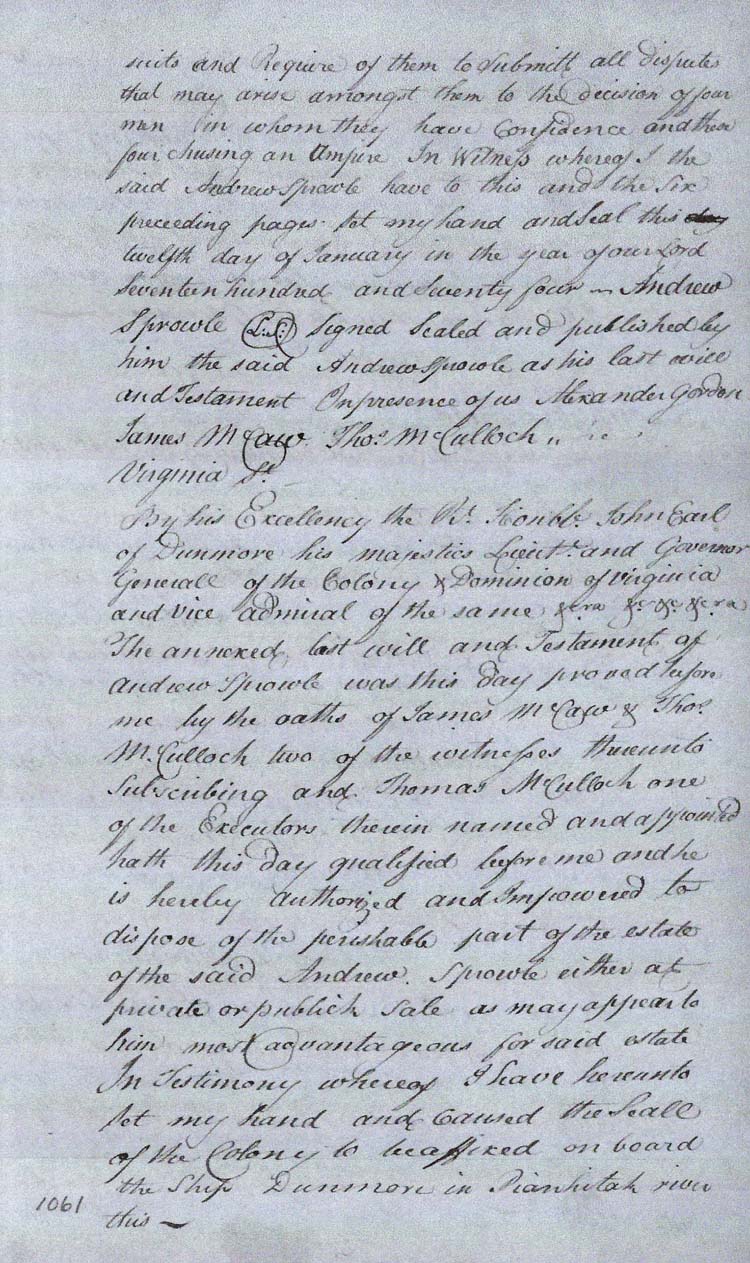 suits and Require of them to Submitt all disputes
that may arise amongst them to the decision of four
men in whom they have Confidence and these
four chusing an Umpire In Witness whereof I the
said Andrew Sprowle have to this and the Six
preceeding pages set my hand and Seal this day
twelfth day of January in the year of our Lord
Seventeen hundred and Seventy four — Andrew
Sprowle (L.S.) Signed Sealed and published by
him the said Andrew Sprowle as his last will
and Testament In presence of us Alexander Gordon
James McCaw. Thos. McCulloch ,,
Virginia St.
By his Excellency the Rt. Honble. John Earl
of Dunmore his majesties Lieutt. and Governor
Generall of the Colony & Dominion of Virginia
and Vice admiral of the same &c.ra &c. &c. &c.ra
The annexed last will and Testament of
Andrew Sprowle was this day proved before
me by the oaths of James McCaw & Thos.
McCulloch two of the witnesses thereunto
Subscribing and Thomas McCulloch one
of the Executors therein named and appointed
hath this day qualified before me and he
is hereby authorized and Impowered to
dispose of the perishable part of the estate
of the said Andrew Sprowle either at
private or publick Sale as may appear to
him most advantageous for said estate
In Testimony whereof I have hereunto
set my hand and Caused the Seall
of the Colony to be affixed on board
the Ship Dunmore in Pianhitak river
this —
1061